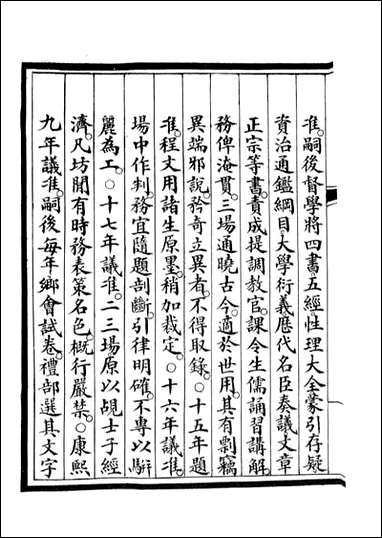 准。嗣後督學將四書五經性理大全蒙引存疑
資治通鑑綱目大學衍義歷代名臣奏議文章
正宗等書責成提調教官課令生儒誦習講解
務俾淹貫三場通曉古今適於世用其有剽竊
異端邪說矜奇立異者不得取錄○十五年題
准。程文用諸生原墨稍加裁定○十六年議准。
場中作判務宜隨題剖斷引律明確不專以駢
麗為工。○十七年議准。二三場原以覘士子經
濟凡坊間有時務表策名色概行嚴禁○康熙
九年議准。嗣後每年鄉會試卷禮部選其文字